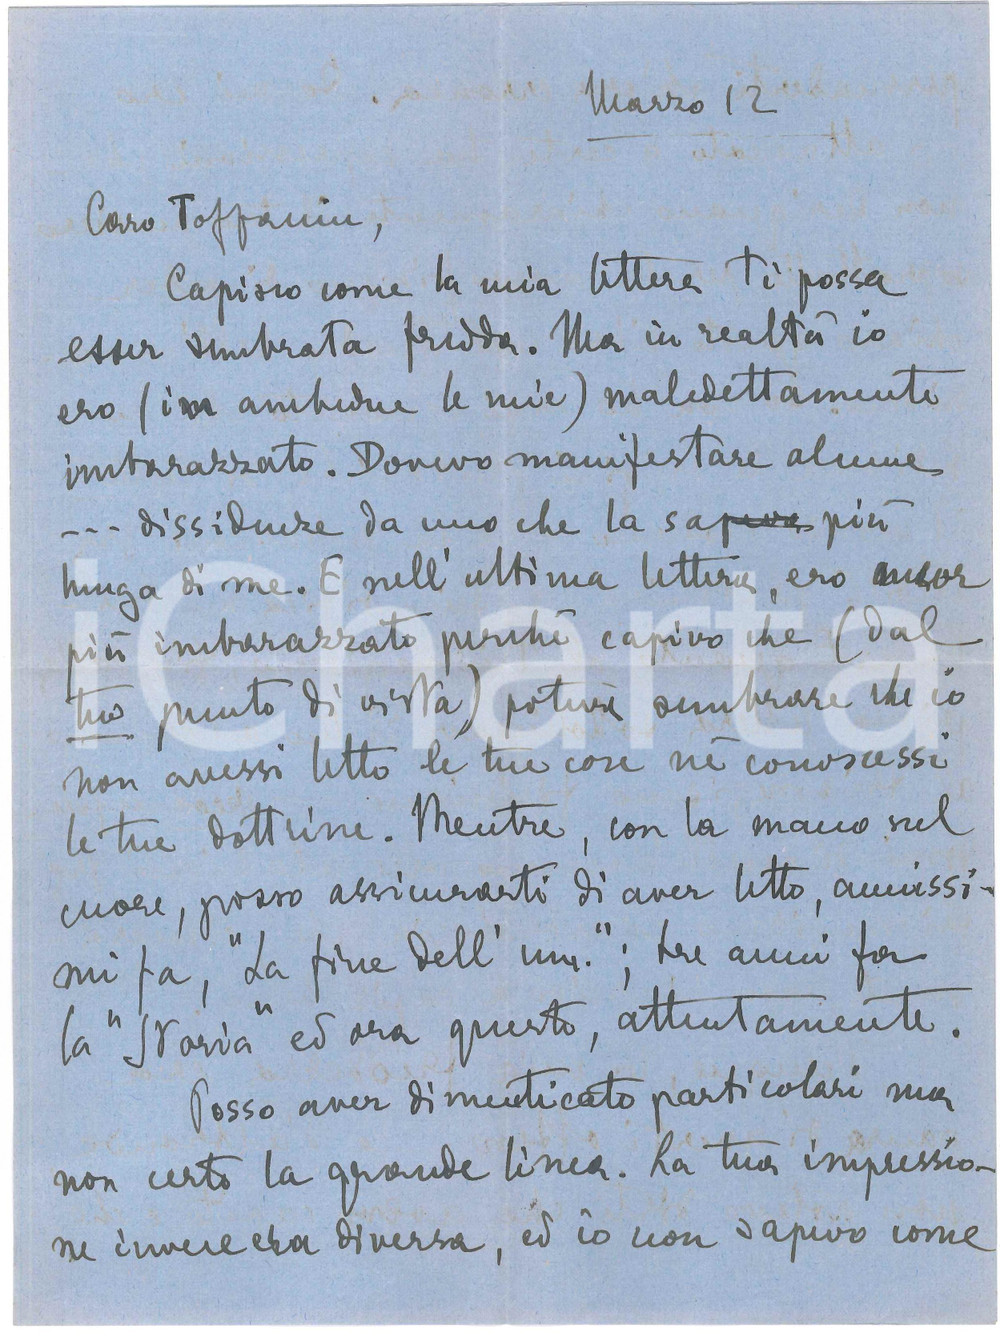 Marzo 12
Caro Toffanin,
Capisco come la mia lettera ti possa
esser sembrata fredda. Ma in realtà io
ero (in ambedue le mie) maledettamente
imbarazzato. Dovevo manifestare alcune
--- dissidenze da uno che la sapeva più
lunga di me. E nell'ultima lettera, ero ancor
più imbarazzato perché capivo che (dal
tuo punto di vista) poteva sembrare che io
non avessi letto le tue cose né conoscessi
le tue dottrine. Mentre, con la mano sul
cuore, posso assicurarti di aver letto, annissi-
mi fa, "La fine dell'um."; tre anni fa
la "Storia" ed ora questo, attentamente.
Posso aver dimenticato particolari ma
non certo la grande linea. La tua impressio-
ne invece era diversa, ed io non sapevo come
iCharta